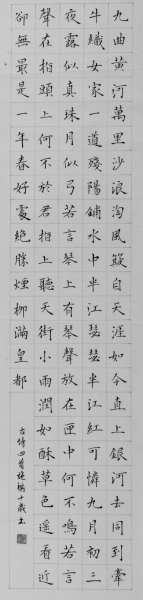 九曲黃河萬里沙浪淘風簸自天涯如今直上銀河去同到牽
牛織女家一道殘陽鋪水中半江瑟瑟半江紅可憐九月初三
夜露似真珠月似弓若言琴上有琴聲放在匣中何不鳴若言
聲在指頭上何不於君指上聽天街小雨潤如酥草色遥看近
卻無最是一年春好處絕勝煙柳滿皇都
古詩四首施 十歲書